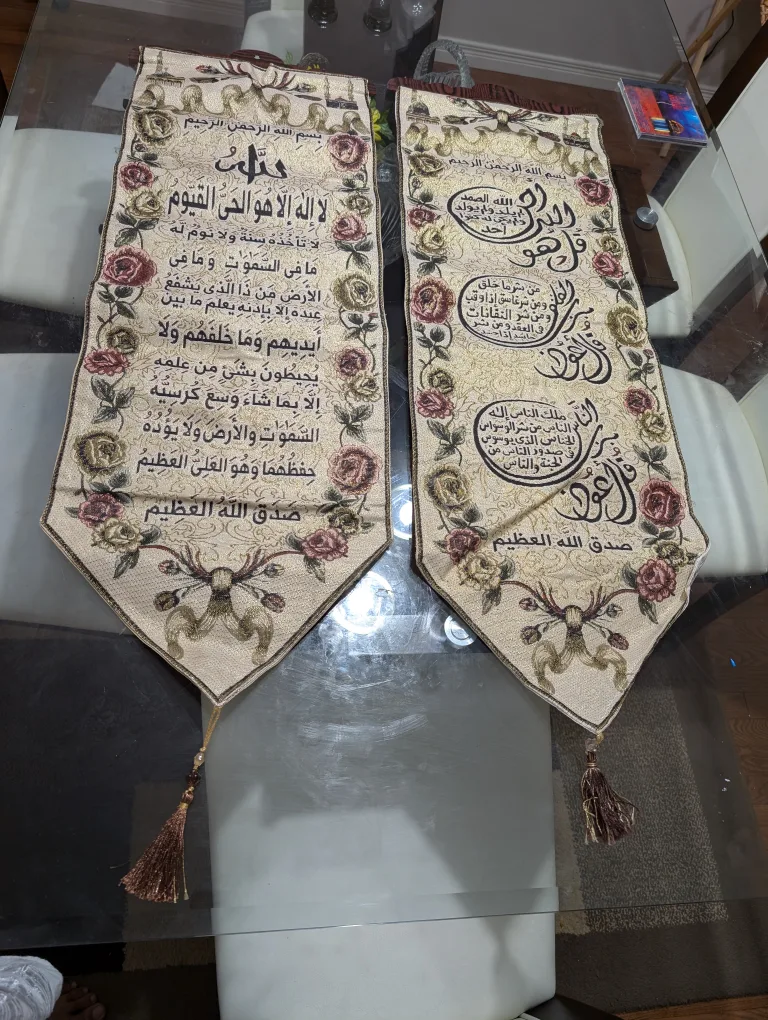 بسم الله الرحمن الرحيم
الله
لا إله إلا هو الحي القيوم
لا تأخذه سنة ولا نوم له
ما في السموٰت وما في
الأرض من ذا الذي يشفع
عنده إلا بإذنه يعلم ما بين
أيديهم وما خلفهم ولا
يحيطون بشئ من علمه
إلا بما شاء وسع كرسيه
السموٰت والأرض ولا يؤده
حفظهما وهو العلي العظيم
صدق الله العظيم
بسم الله الرحمن الرحيم
قل هو الله أحد
الله الصمد
لم يلد ولم يولد
ولم يكن له كفوا
أحد
قل أعوذ برب الفلق
من شر ما خلق
ومن شر غاسق إذا وقب
ومن شر النفاثات
في العقد ومن شر
حاسد إذا
قل أعوذ برب الناس
ملك الناس إله
الناس من شر الوسواس
الخناس الذي يوسوس
في صدور الناس من
الجنة والناس
صدق الله العظيم